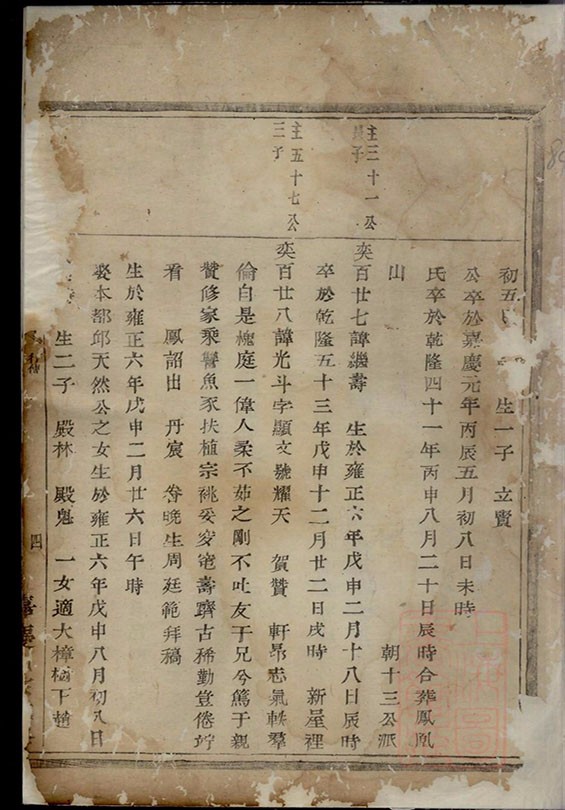 初五 生一子 立賢
公卒於嘉慶元年丙辰五月初八日未時
氏卒於乾隆四十一年丙申八月二十日辰時合葬鳳凰
山 朝十三公派
主三十一公
子
奕百廿七諱繼壽 生於雍正六年戊申二月十八日辰時
卒於乾隆五十三年戊申十二月廿二日戌時 新屋裡
主五十七公
三子
奕百廿八諱光斗字顯文號耀天 賀贊 軒昂志氣軼羣
倫自是槐庭一偉人柔不茹之剛不吐友于兄兮篤于親
贊修家乘譽魚豕扶植宗祧妥穸窀壽躋古稀勤豈倦竚
看 鳳詔出 丹宸 眷晚生周廷範拜稿
生於雍正六年戊申二月廿六日午時
娶本都邱天然公之女生於雍正六年戊申八月初八日
生二子 殿林 殿魁 一女適大樟樹下趙
四